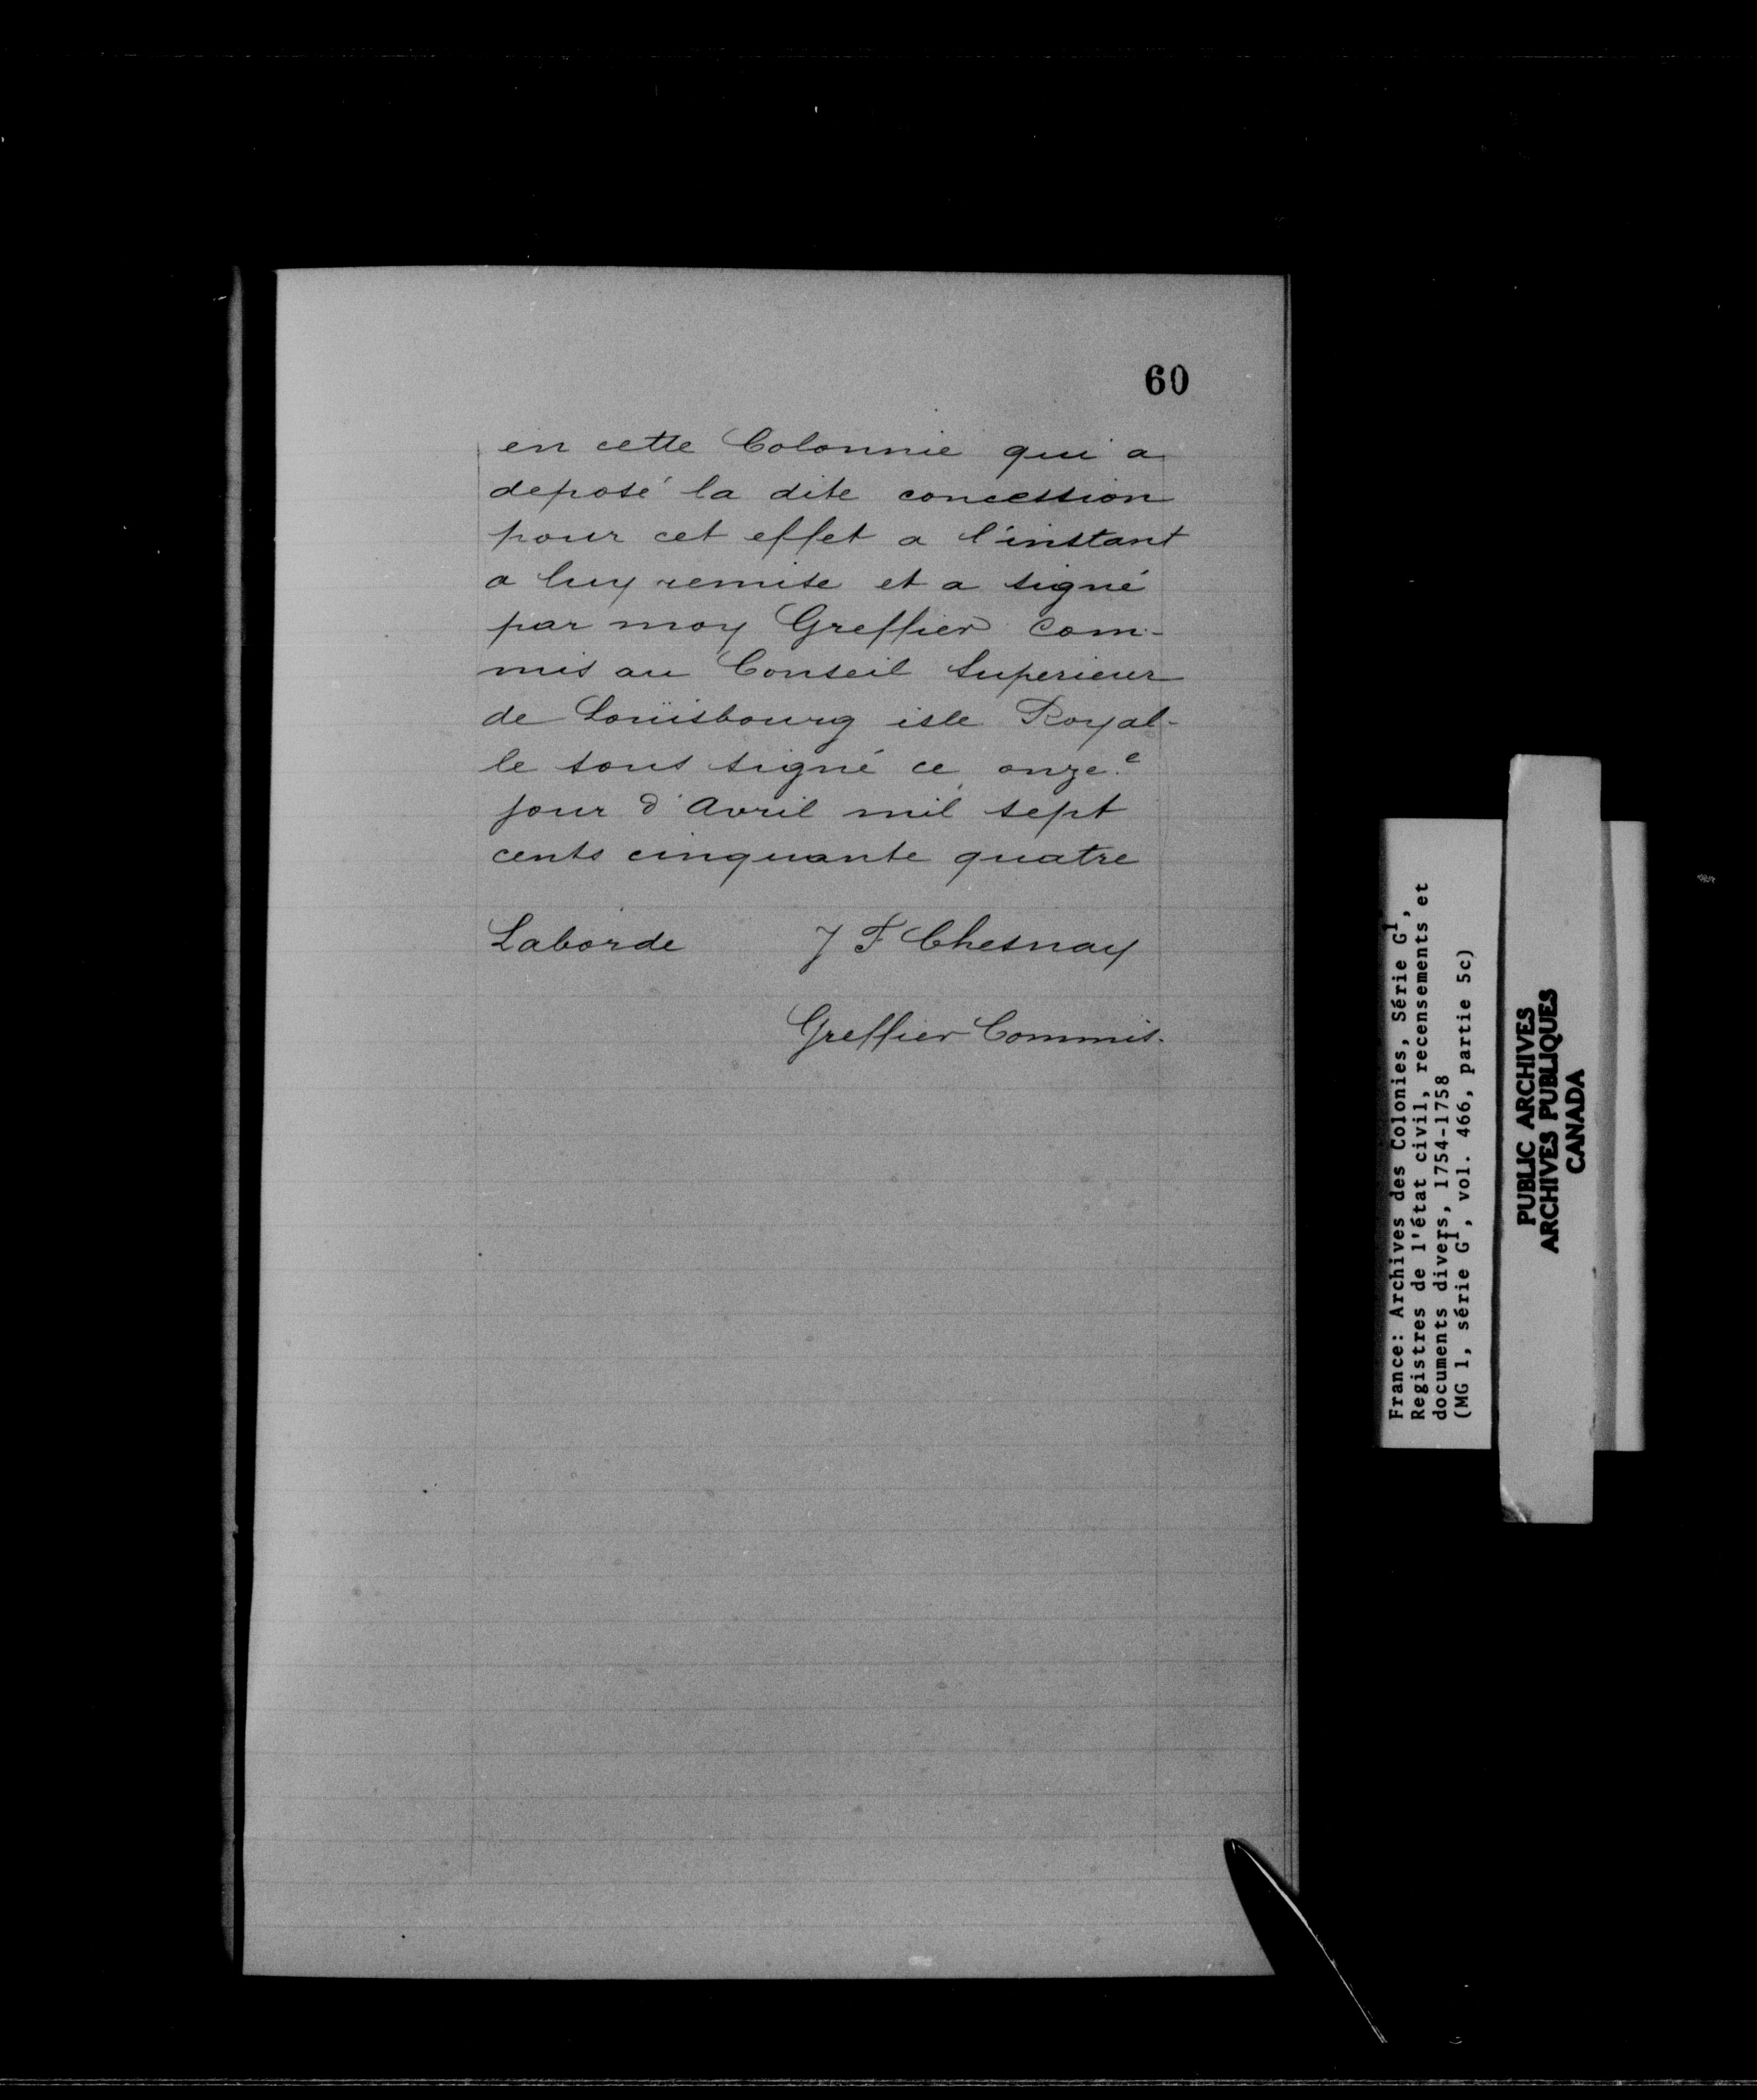 60
en cette Colonnie qui a
deposé la dite concession
pour cet effet a l'instant
a luy remise et a signé
par moy Greffier Com-
mis au Conseil Superieur
de Loüisbourg isle Royal-
le sous signé ce onze.e
jour d'Avril mil sept
cents cinquante quatre
Laborde J F Chesnay
Greffier Commis.
France: Archives des Colonies, Série G1,
Registres de l'état civil, recensements et
documents divers, 1754-1758
(MG 1, série G1, vol. 466, partie 5c)
PUBLIC ARCHIVES
ARCHIVES PUBLIQUES
CANADA